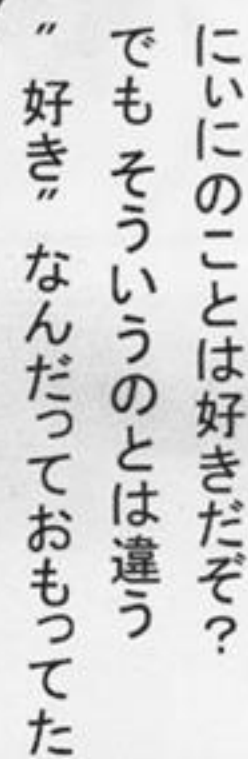 にぃにのことは好きだぞ？
でも そういうのとは違う
〃好き〃 なんだっておもってた